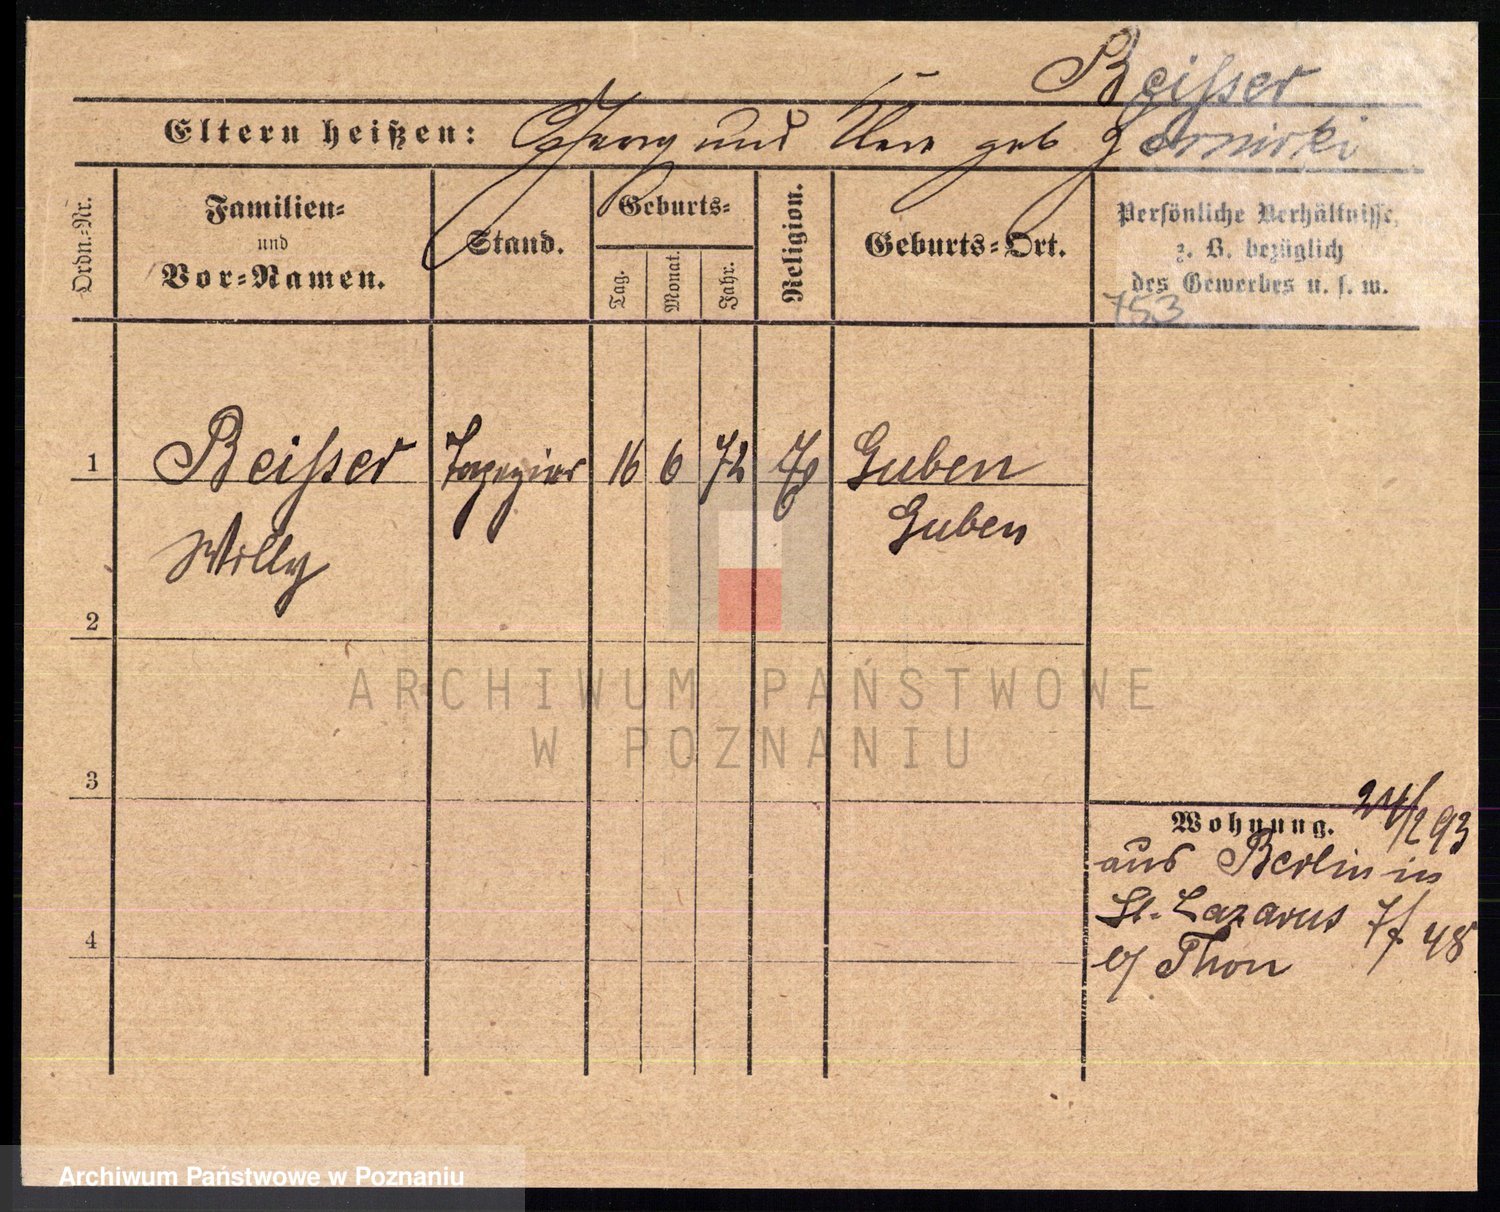 Beisser
Eltern heißen: Georg und geb.
Ordn.-Nr.
Familien-
und
Vor-Namen.
Stand.
Geburts-
Tag.
Monat.
Jahr.
Religion.
Geburts-Ort.
Persönliche Verhältnisse,
z. B. bezüglich
des Gewerbes u. s. w.
753
1 Beisser Tapezier 16 6 72 Guben
Guben
Willy
2
ARCHIWUM PAŃSTWOWE
W POZNANIU
3
Wohnung. 24/2 93
aus Berlin in
St. Lazarus 48
Thon
4
Archiwum Państwowe w Poznaniu